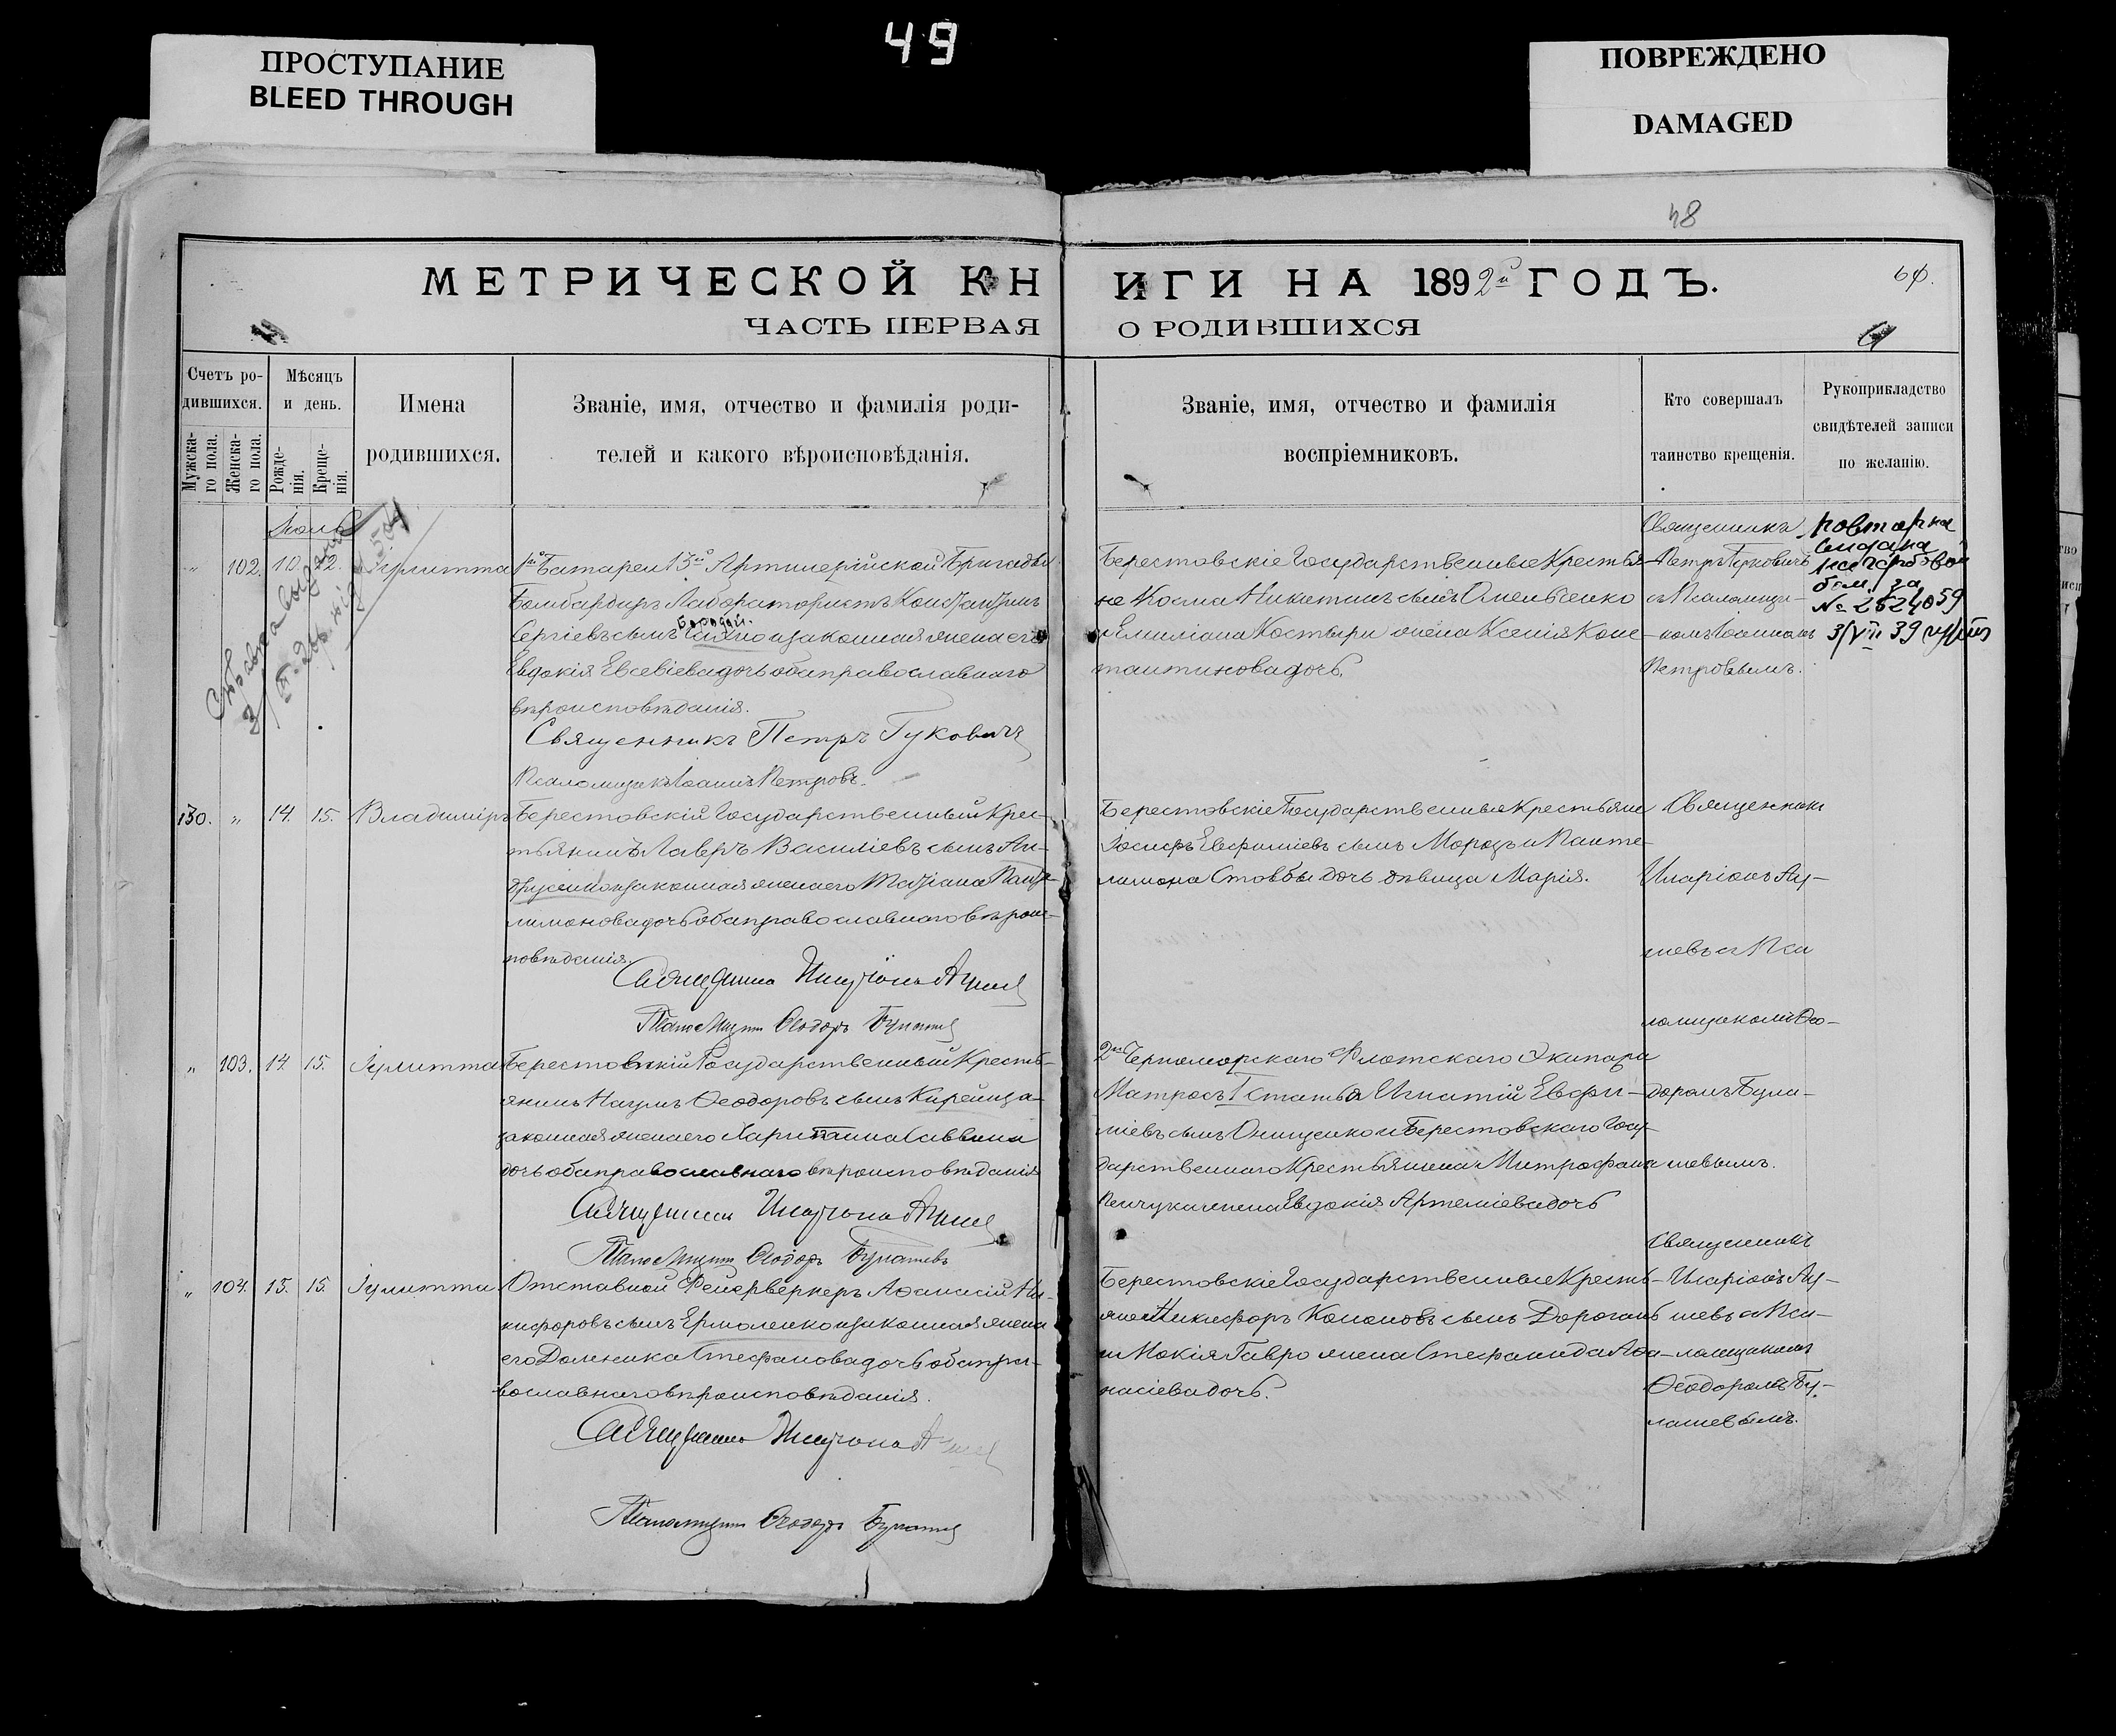 49
ПРОСТУПАНИЕ
BLEED THROUGH
ПОВРЕЖДЕНО
DAMAGED
48
МЕТРИЧЕСКОЙ КН
ИГИ НА 1892й ГОДЪ.
ЧАСТЬ ПЕРВАЯ
О РОДИВШИХСЯ
Счетъ ро-
дившихся.
Мужска-
го пола.
Женска-
го пола.
Мѣсяцъ
и день.
Рожде-
нія.
Креще-
нія.
Имена
родившихся.
Званіе, имя, отчество и фамилія роди-
телей и какого вѣроисповѣданія.
Званіе, имя, отчество и фамилія
воспріемниковъ.
Кто совершалъ
таинство крещенія.
Рукоприкладство
свидѣтелей записи
по желанію.
Іюль
" 102. 10. 12. Іулитта
Батареи 13й Артилерійской Бригады
Бомбардиръ Лаборатористъ Константинъ
Бородай.
Сергіевъ сынъ и законная жена его
Евдокія Евсевіева дочь оба православнаго
вѣроисповѣданія.
Священникъ Петръ Гуковичъ
Псаломщикъ Іоаннъ Петровъ.
Берестовскіе Государственные Крестья-
не Косма Никитинъ сынъ Омельченко
и Емиліана Костыри жена Ксенія Конс-
тантинова дочь.
Священникъ
Петръ Гуковичъ
съ Псаломщи-
комъ Іоанномъ
Петровымъ.
повторна
видана
на гербовой
бум. за
№ 2624059
3/VIII 39
130. " 14. 15. Владиміръ
Берестовскій Государственный Крес-
тьянинъ Лавръ Василіевъ сынъ Ан-
друсенко и законная жена его Татіана Панте-
лимонова дочь оба православнаго вѣроис-
повѣданія.
Священникъ Иларіонъ
Псаломщикъ Ѳеодоръ
Берестовскіе Государственные Крестьяне
Іосифъ Евфиміевъ сынъ Морозъ и Панте-
лимона Стовбы дочь дѣвица Марія.
Священникъ
Иларіонъ
съ Пса
ломщикомъ Ѳео-
доромъ Була-
шевымъ.
" 103. 14. 15. Іулитта
Берестовскій Государственный Кресть-
янинъ Наумъ Ѳеодоровъ сынъ
законная жена его Харитина Саввина
дочь оба православнаго вѣроисповѣданія
Священникъ Иларіонъ
Псаломщикъ Ѳеодоръ Булашевъ
2го Черноморскаго Флотскаго Экипажа
Матросъ 1 статьи Игнатій Евфи-
міевъ сынъ Онищенко и Берестовскаго Госу-
дарственнаго Крестьянина Митрофана
жена Евдокія Артеміева дочь
" 104. 15. 15. Іулитта
Отставной Фейерверкеръ Аѳанасій Ни-
кифоровъ сынъ Ермоленко и законная жена
его Домникa Стефанова дочь оба пра-
вославнаго вѣроисповѣданія.
Священникъ Иларіонъ
Псаломщикъ Ѳеодоръ
Берестовскіе Государственные Кресть-
яне Никифоръ Кононовъ сынъ Дорогань
и Мокія Гавро жена Стефанида Аѳа-
насіева дочь.
Священникъ
Иларіонъ
съ Пса-
ломщикомъ
Ѳеодоромъ Бу-
лашевымъ.